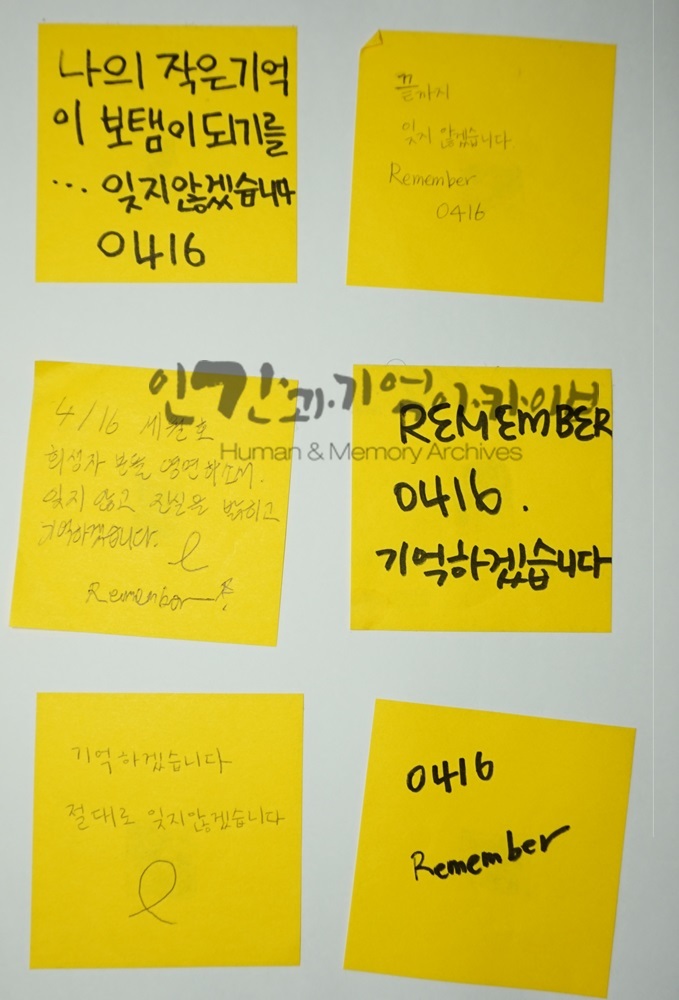 나의 작은기억
이 보탬이되기를
... 잊지않겠습니다
0416
끝까지
잊지 않겠습니다
Remember
0416
인간과기억아카이브
Human & Memory Archives
4/16 세월호
희생자 분들 영면하소서.
잊지 않고 진실을 밝히고
기억하겠습니다.
Remember
REMEMBER
0416.
기억하겠습니다
기억하겠습니다
절대로 잊지않겠습니다
0416
Remember